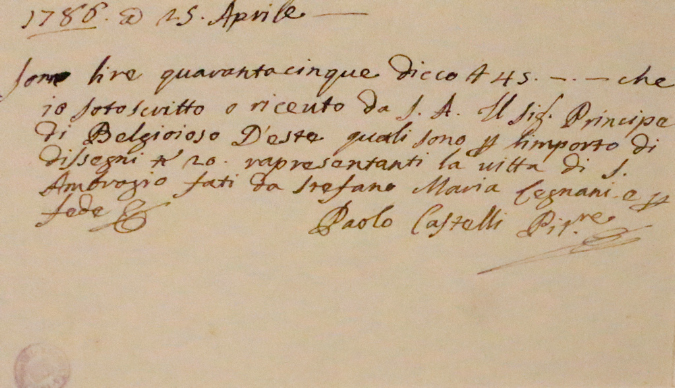 1786. a 25. Aprile
Sono lire quarantacinque dicco # 45. -. - che
io sotoscritto o riceuto da S. A. Il Sig.r Principe
di Belgioioso D'este quali sono p limporto di
dissegni n.° 20. rapresentanti la vitta di S.
Ambrogio fati da Stefano Maria Legnani e p
fede
Paolo Castelli Pit.re